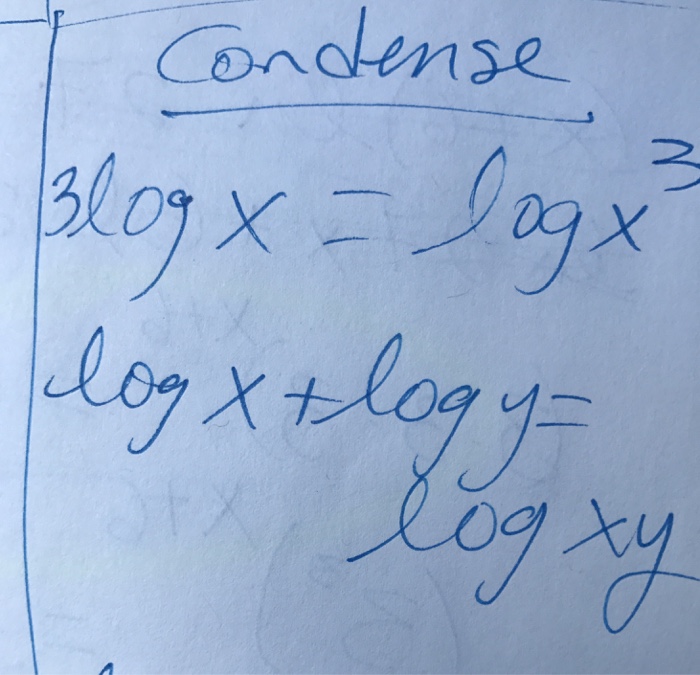 Condense
3log x = log x³
log x + log y =
log xy